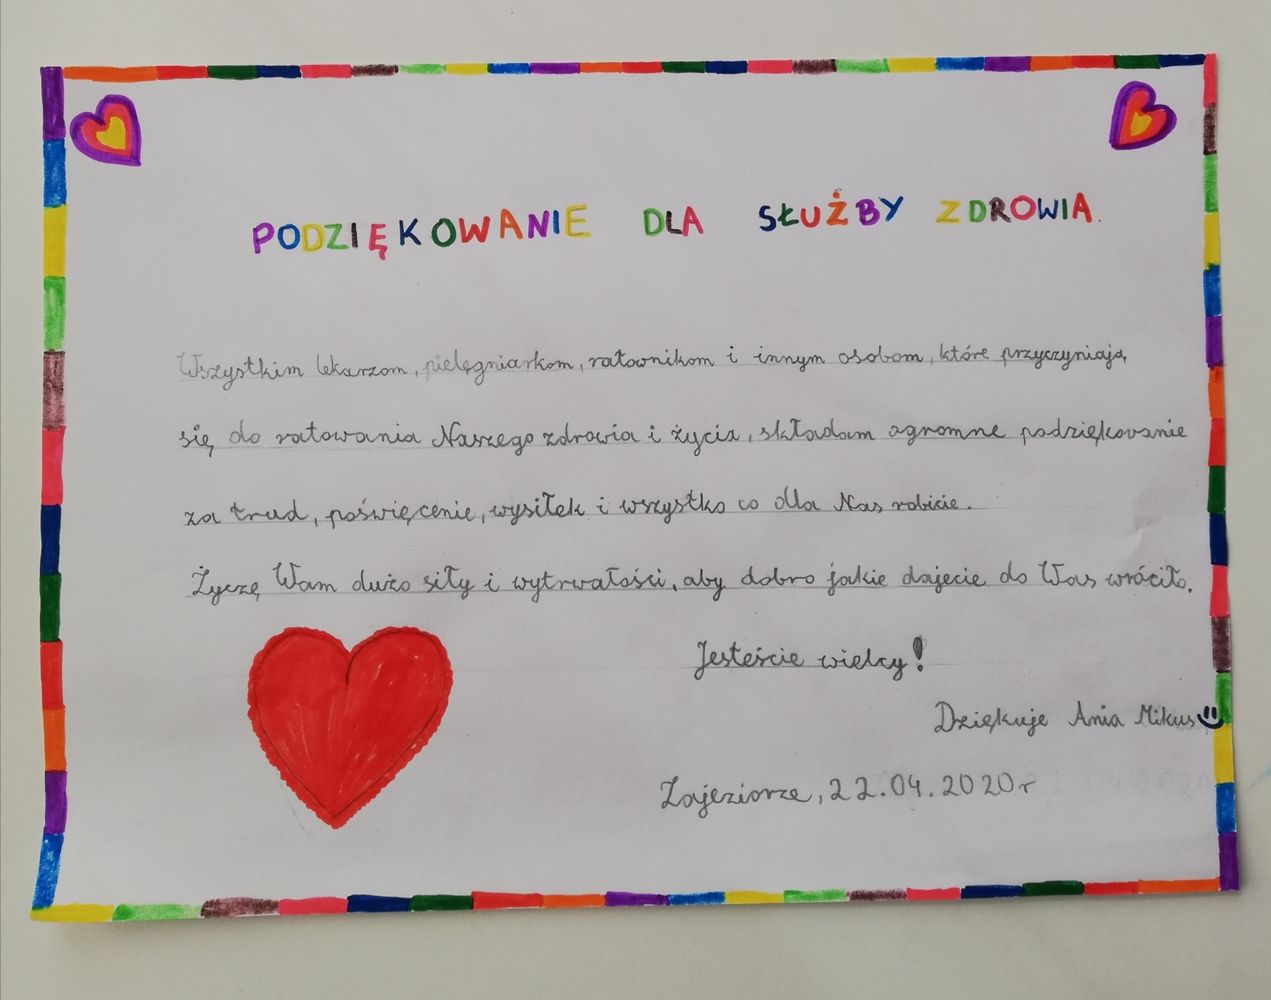 PODZIĘKOWANIE DLA SŁUŻBY ZDROWIA.
Wszystkim lekarzom, pielęgniarkom, ratownikom i innym osobom, które przyczyniają
się do ratowania Naszego zdrowia i życia, składam ogromne podziękowanie
za trud, poświęcenie, wysiłek i wszystko co dla Nas robicie.
Życzę Wam dużo siły i wytrwałości, aby dobro jakie dajecie do Was wróciło.
Jesteście wielcy!
Dziękuje Ania Mikus
Zajezierze, 22.04.2020r